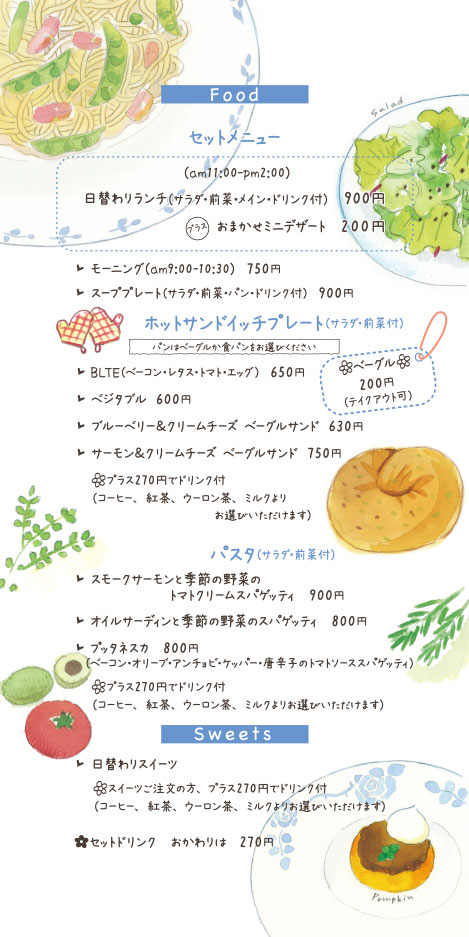 Food
Salad
セットメニュー
(am11:00-pm2:00)
日替わりランチ(サラダ・前菜・メイン・ドリンク付) 900円
プラス おまかせミニデザート 200円
モーニング(am9:00-10:30) 750円
スーププレート(サラダ・前菜・パン・ドリンク付) 900円
ホットサンドイッチプレート(サラダ・前菜付)
パンはベーグルか食パンをお選びください
ベーグル
200円
(テイクアウト可)
BLTE(ベーコン・レタス・トマト・エッグ) 650円
ベジタブル 600円
ブルーベリー&クリームチーズ ベーグルサンド 630円
サーモン&クリームチーズ ベーグルサンド 750円
プラス270円でドリンク付
(コーヒー、紅茶、ウーロン茶、ミルクより
お選びいただけます)
パスタ(サラダ・前菜付)
スモークサーモンと季節の野菜の
トマトクリームスパゲッティ 900円
オイルサーディンと季節の野菜のスパゲッティ 800円
プッタネスカ 800円
(ベーコン・オリーブ・アンチョビ・ケッパー・唐辛子のトマトソーススパゲッティ)
プラス270円でドリンク付
(コーヒー、紅茶、ウーロン茶、ミルクよりお選びいただけます)
Sweets
日替わりスイーツ
スイーツご注文の方、プラス270円でドリンク付
(コーヒー、紅茶、ウーロン茶、ミルクよりお選びいただけます)
セットドリンク おかわりは 270円
Pumpkin